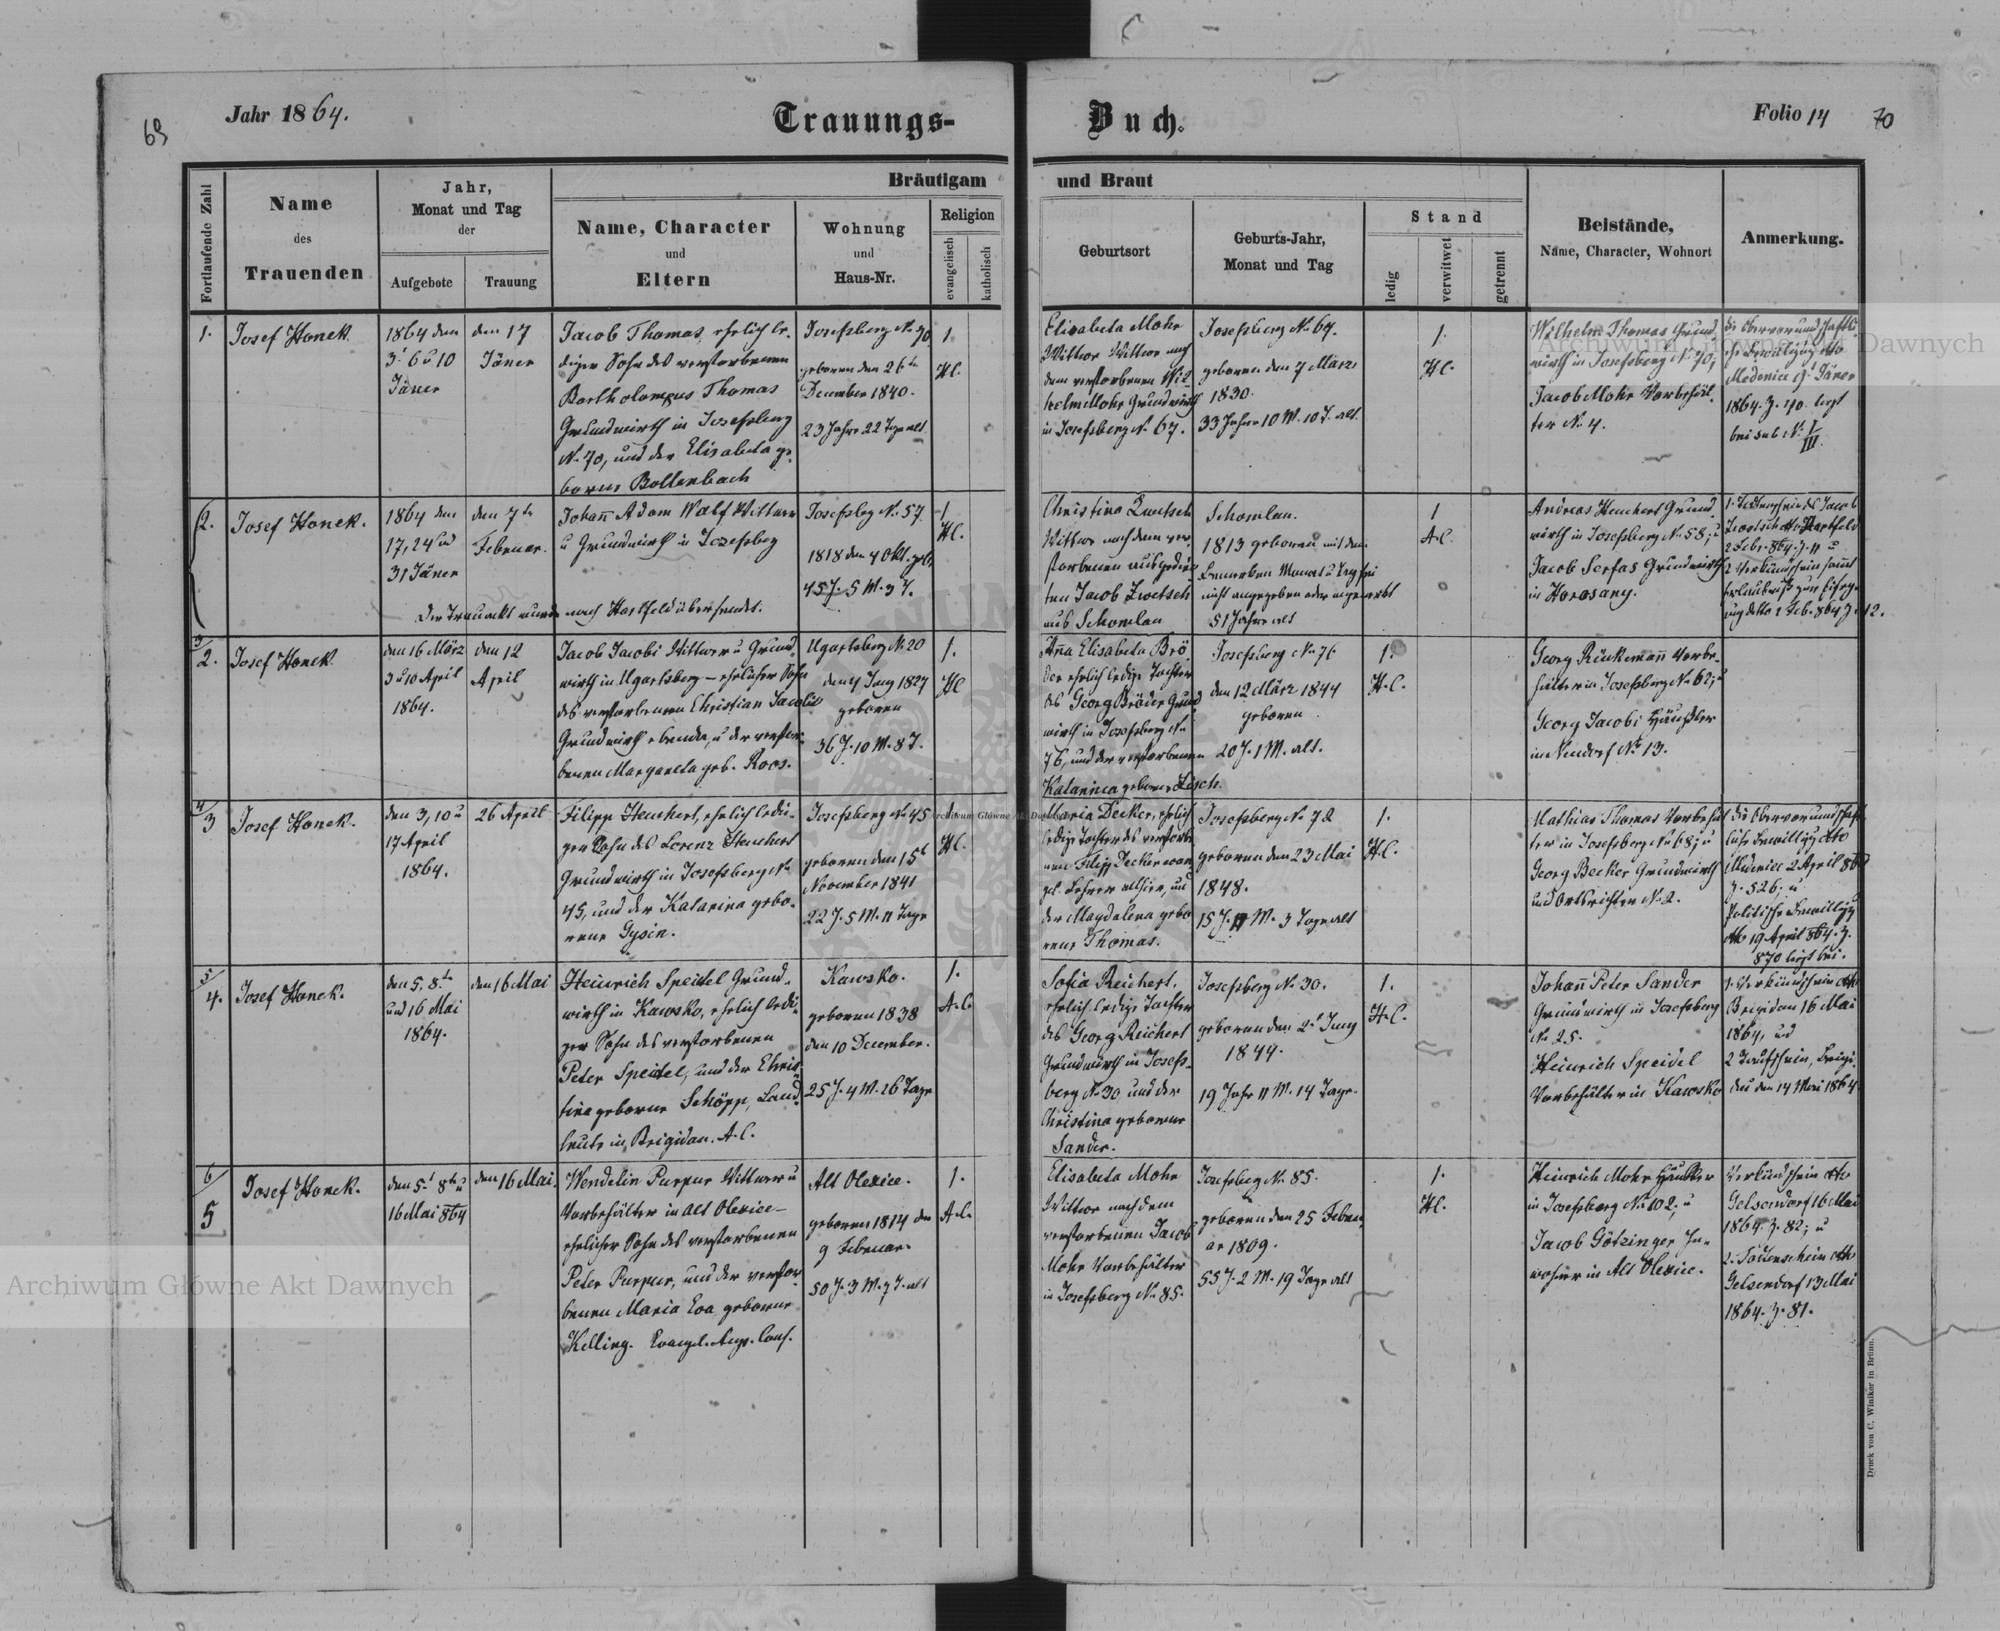 69
Jahr 1864.
Trauungs-
Buch.
Folio 14
70
Fortlaufende Zahl
Name
des
Trauenden
Jahr,
Monat und Tag
der
Aufgebote
Trauung
Bräutigam
Name, Character
und
Eltern
Wohnung
und
Haus-Nr.
Religion
evangelisch
katholisch
und Braut
Geburtsort
Geburts-Jahr,
Monat und Tag
Stand
ledig
verwitwet
getrennt
Beistände,
Name, Character, Wohnort
Anmerkung.
1.
Josef Honek.
1864 den
3' 6 u 10
Jäner
den 17
Jäner
Jacob Thomas, ehrlich le-
diger Sohn des verstorbenen
Bartholomeus Thomas
Grundwirth in Josefsberg
N. 70, und der Elisabeta ge-
borene Bollenbach
Josefsberg No 70
geboren den 26te
December 1840.
23 Jahre 22 Tage alt.
1.
H.C.
Elisabeta Mohr
Wittwe nach
dem verstorbenen Wil-
helm Mohr Grundwirth
in Josefsberg No 67.
Josefsberg No 67.
geboren den 7 März
1830.
33 Jahre 10 M. 10 T. alt.
1.
H.C.
Wilhelm Thomas Grund-
wirth in Josefsberg No 70,
Jacob Mohr Vorbehäl-
ter N. 4.
die Obervormundschaftli-
che Bewilligung dto
Medenice 9' Jäner
1864. Z. 40. liegt
bei sub No I/III.
2.
Josef Honek.
1864 den
17, 24 und
31 Jäner
den 7te
Februar.
Johann Adam Wolf Wittwer
u Grundwirth in Josefsberg
Josefsbg No 57
1818 den 4 Okt. geb.
45 J. 5 M. 3 T.
1
H.C.
Der Trauackt wurde nach Hartfeld übersendet.
Christina Zwetsch
Wittwe nach dem ver-
storbenen ausgedien-
ten Jacob Zwetsch
aus Schomlau
Schomlau.
1813 geboren mit dem
Bemerken Monat u Tag sei
nicht angegeben oder angemerkt
51 Jahre alt
1
A.C.
Andreas Heuchert Grund-
wirth in Josefsberg No 58; u
Jacob Serfas Grundwirth
in Horosany.
1. Todtenschein des Jacob
Zwetsch dto Hartfeld
2 Febr. 864. Z. 11 u
2 Verkündschein sammt
Erlaubniß zur Einseg-
nung detto 2 Feb. 864 Z. 12.
3/2.
Josef Honek.
den 16 März
3 u 10 April
1864.
den 12
April
Jacob Jacobi Wittwer u Grund-
wirth in Ugartsberg – ehrlicher Sohn
des verstorbenen Christian Jacobi
Grundwirth ebenda, u der verstor-
benen Margareta geb. Roos.
Ugartsberg N. 20
den 4 Juny 1827
geboren
36 J. 10 M. 8 T.
1.
H.C.
Anna Elisabeta Brö-
der ehrlich ledige Tochter
des Georg Bröder Grund-
wirth in Josefsberg No
76, und der verstorbenen
Katarina geborne Lisch.
Josefsberg No 76
den 12 März 1844
geboren
20 J. 1 M. alt.
1.
H.C.
Georg Rückemann Vorbe-
hälter in Josefsberg No 62; u
Georg Jacobi Häußler
in Neudorf No 13.
4/3
Josef Honek.
den 3, 10 u
17 April
1864.
26 April
Filipp Heuchert, ehrlich ledi-
ger Sohn des Lorenz Heuchert
Grundwirth in Josefsberg No
45, und der Katarina gebo-
rene Gysin.
Josefsberg No 45
geboren den 15t
November 1841
22 J. 5 M. 11 Tage
1.
H.C.
Maria Decker, ehrlich
ledige Tochter des verstorbe-
nen Filipp Decker evan-
gel. Lehrer allhier, und
der Magdalena gebo-
rene Thomas.
Josefsberg No 72
geboren den 23 Mai
1848.
15 J. 11 M. 3 Tage alt
1.
H.C.
Mathias Thomas Vorbehäl-
ter in Josefsberg No 68; u
Georg Becker Grundwirth
und Ortsrichter N. 2.
die Obervormundschaft-
liche Bewilligg dto
Medenice 2 April 864
Z. 526; u
Politische Bewilligg
dto 19 April 864. Z.
870 liegt bei.
5/4.
Josef Honek.
den 5. 8.te
und 16 Mai
1864.
den 16 Mai
Heinrich Speidel Grund-
wirth in Kawsko, ehrlich ledi-
ger Sohn des verstorbenen
Peter Speidel, und der Chris-
tina geborne Schöpp, Land-
leute in Brigidau. A.C.
Kawsko.
geboren 1838
den 10 December.
25 J. 4 M. 26 Tage
1.
A.C.
Sofia Reichert,
ehrlich ledige Tochter
des Georg Reichert
Grundwirth in Josefs-
berg No 30 und der
Christina geborene
Sander.
Josefsberg No 30.
geboren den 2t Juny
1844.
19 Jahr 11 M. 14 Tage.
1.
H.C.
Johann Peter Sander
Grundwirth in Josefsberg
No 25.
Heinrich Speidel
Vorbehälter in Kawsko
1. Verkündschein dto
Brigidau 16 Mai
1864, und
2 Taufschein, Brigi-
dau den 14 Mai 1864
6/5
Josef Honek.
den 5t 8te u
16 Mai 864
den 16 Mai.
Wendelin Purpur Wittwer u
Vorbehälter in Alt Olexice –
ehrlicher Sohn des verstorbenen
Peter Purpur, und der verstor-
benen Maria Eva, geborne
Kelling. Evangel. Augs. Conf.
Alt Olexice.
geboren 1814 den
9 Februar.
50 J. 3 M. 7 T. alt
1.
A.C.
Elisabeta Mohr
Wittwe nach dem
verstorbenen Jacob
Mohr Vorbehälter
in Josefsberg No 85.
Josefsbeg No 85.
geboren den 25 Febru-
ar 1809.
55 J. 2 M. 19 Tage alt
1.
H.C.
Heinrich Mohr Häußler
in Josefsberg No 102; u
Jacob Götzinger In-
wohner in Alt Olexice.
Verkündschein dto
Gelsendorf 16 Mai
1864. Z. 82; u
2. Todtenschein dto
Gelsendorf 13 Mai
1864. Z. 81.
Druck von C. Winiker in Brünn.
Archiwum Główne Akt Dawnych
Archiwum Główne Akt Dawnych
Archiwum Główne Akt Dawnych